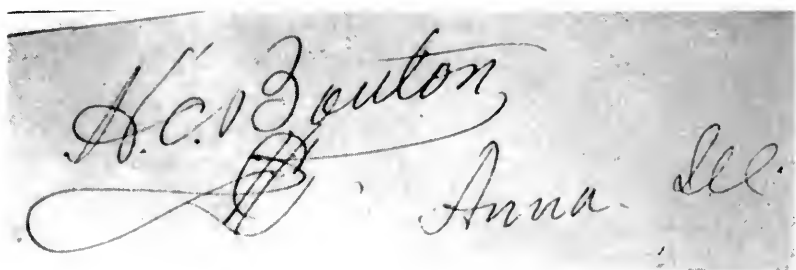 H. C. Bouton
Anna. Ill.